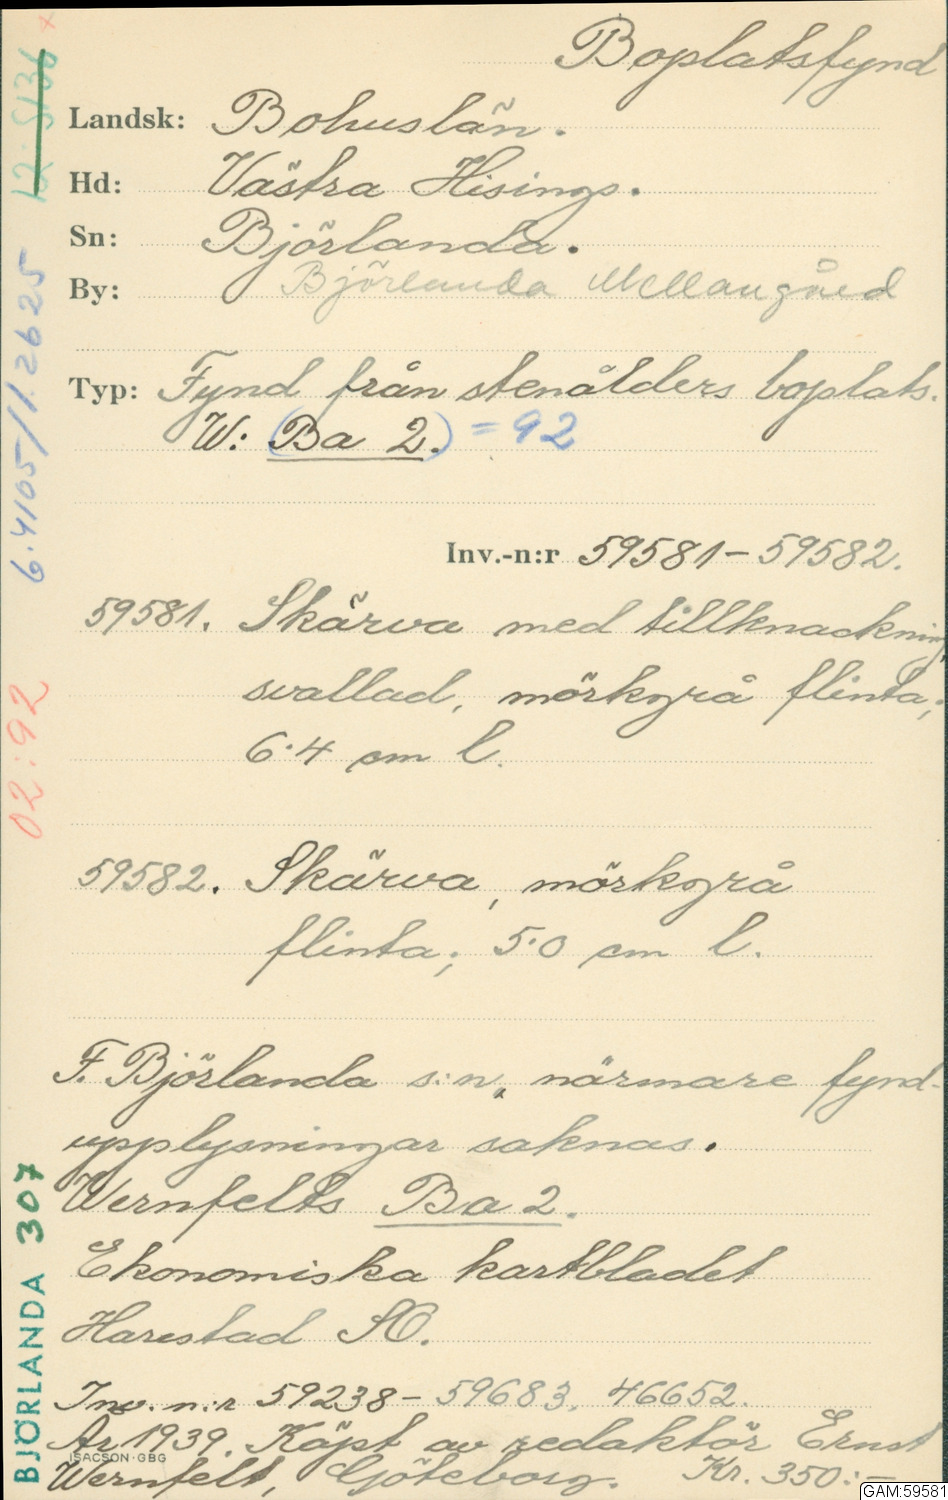 Boplatsfynd
Landsk: Bohuslän.
Hd: Västra Hisings.
Sn: Björlanda.
By: Björlanda Mellangård
Typ: Fynd från stenålders boplats.
W: (Ba 2.) = 92
Inv.-n:r 59581-59582.
59581. Skärva med tillknackning,
svallad, mörkgrå flinta;
6.4 cm l.
59582. Skärva, mörkgrå
flinta; 5.0 cm l.
F. Björlanda s:n, närmare fynd-
upplysningar saknas.
Wernfelts Ba 2.
Ekonomiska kartbladet
Harestad SO.
Inv. n:r 59238-59683, 46652.
År 1939. Köpt av redaktör Ernst
ISACSON·GBG
Wernfelt, Göteborg. Kr. 350:-
12:S136 x
6.4105/1.2625
02:92
BJÖRLANDA 307
GAM:59581